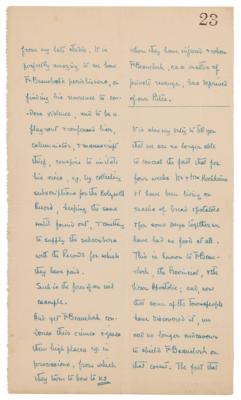 23
from my late studio. It is
perfectly amazing to see how
Fr Beauclerk's parishioners, on
finding his reverence to con-
done violence, and to be a
flagrant & confessed liar,
calumniator, & manuscript
thief, conspire to imitate
his vices, eg. by collecting
subscriptions for the Holywell
Record, keeping the same
until found out, & omitting
to supply the subscribers
with the Records for which
they have paid.
Such is the force of an evil
example.
And yet Fr Beauclerk con-
dones their crimes & gives
them high places eg. in
processions, from which
they turn to bow to us
when they have injured & whom
Fr Beauclerk, as a matter of
private revenge, has deprived
of our Rites.
It is also my duty to tell you
that we are no longer able
to conceal the fact that for
four weeks Mr & Mrs Hochheimer
& I have been living on
snacks of bread & potatoes
& for some days together we
have had no food at all.
This is known to Fr Beau-
clerk, the Provincial, & the
Vicar Apostolic; and, now
that some of the townspeople
have discovered it, we
need no longer endeavour
to shield Fr Beauclerk on
that count. The fact that